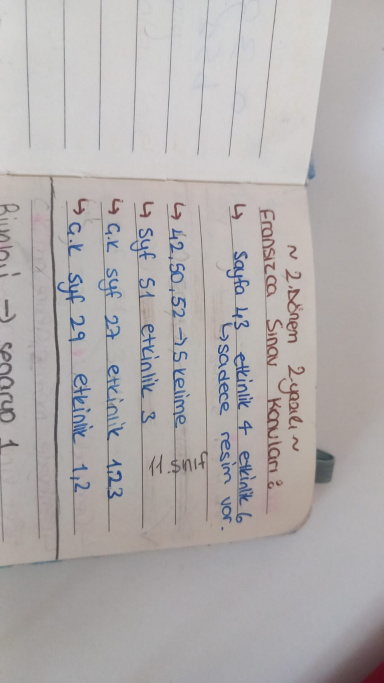 ~ 2.Dönem 2.yazılı ~
Fransızca Sınav Konuları:
↳ Sayfa 43 etkinlik 4 etkinlik 6
↳ sadece resim var.
↳ 42,50,52 → 5 kelime
11.sınıf
↳ Syf 51 etkinlik 3
↳ G.k syf 27 etkinlik 1,2,3
↳ G.k syf 29 etkinlik 1,2
→ senaryo 1